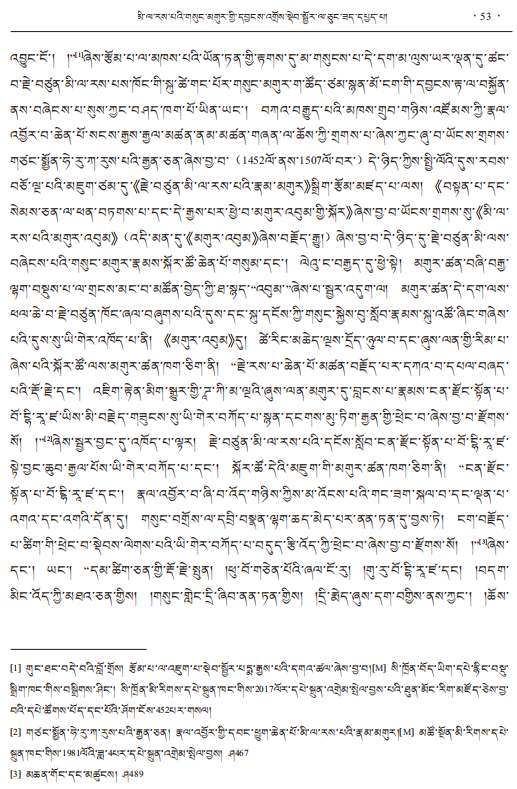 མི་ལ་རས་པའི་གསུང་མགུར་གྱི་དབྱངས་འགྲོས་སྡེབ་སྦྱོར་ལ་ཅུང་ཟད་དཔྱད་པ། · 53 ·
འབྱུང་ངོ་། །”[1]ཞེས་རྩོམ་པ་ལ་མཁས་པའི་ཡོན་ཏན་གྱི་རྟགས་དུ་མ་གསུངས་པ་དེ་དག་མ་ལུས་ཡར་ལྡན་དུ་ཚང་
བ་རྗེ་བཙུན་མི་ལ་རས་པས་ཁོང་གི་སྐུ་ཚེ་གང་པོར་གསུང་མགུར་ག་ཚོད་ཙམ་སྙན་མོ་ངག་གི་དབྱངས་རྟ་ལ་བསྐྱོན་
ནས་བཞེངས་པ་སུས་ཀྱང་བཤད་ཁག་པོ་ཡིན་ཡང་། བཀའ་བརྒྱུད་པའི་མཁས་གྲུབ་གཉིས་འཛོམས་ཀྱི་རྣལ་
འབྱོར་བ་ཆེན་པོ་སངས་རྒྱས་རྒྱལ་མཚན་ནམ་མཚན་གཞན་ལ་ཆོས་ཀྱི་གྲགས་པ་ཞེས་ཀྱང་ཞུ་བ་ཡོངས་གྲགས་
གཙང་སྨྱོན་ཧེ་རུ་ཀ་རུས་པའི་རྒྱན་ཅན་ཞེས་བྱ་བ་（1452ལོ་ནས་1507ལོ་བར་）དེ་ཉིད་ཀྱིས་སྤྱི་ལོའི་དུས་རབས་
བཅོ་ལྔ་པའི་མཇུག་ཙམ་དུ་《རྗེ་བཙུན་མི་ལ་རས་པའི་རྣམ་མགུར》སྒྲིག་རྩོམ་མཛད་པ་ལས། 《བསྟན་པ་དང་
སེམས་ཅན་ལ་ཕན་བཏགས་པ་དང་དེ་རྒྱས་པར་ཕྱེ་བ་མགུར་འབུམ་གྱི་སྐོར》ཞེས་བྱ་བ་ཡོངས་གྲགས་སུ་《མི་ལ་
རས་པའི་མགུར་འབུམ》（འདི་མན་དུ་《མགུར་འབུམ》ཞེས་བརྗོད་རྒྱུ།）ཞེས་བྱ་བ་དེ་ཉིད་དུ་རྗེ་བཙུན་མི་ལས་
བཞེངས་པའི་གསུང་མགུར་རྣམས་སྐོར་ཚོ་ཆེན་པོ་གསུམ་དང་། ལེའུ་ང་བརྒྱད་དུ་ཕྱེ་སྟེ། མགུར་ཚན་བཞི་བརྒྱ་
ལྷག་བསྡུས་པ་ལ་གྲངས་མང་བ་མཚོན་བྱེད་ཀྱི་ཐ་སྙད་“འབུམ་”ཞེས་པ་སྦྱར་འདུག་ལ། མགུར་ཚན་དེ་དག་ལས་
ཕལ་ཆེ་བ་རྗེ་བཙུན་ཁོང་ཞལ་བཞུགས་པའི་དུས་དང་སྐུ་དངོས་ཀྱི་གསུང་སྐྱེས་བུ་སློབ་རྣམས་སྐུ་འཚོ་ཞིང་གཞེས་
པའི་དུས་སུ་ཡི་གེར་འཁོད་པ་ནི། 《མགུར་འབུམ》དུ། ཚེ་རིང་མཆེད་ལྔས་དྲོད་ཉུལ་བ་དང་ཞུས་ལན་གྱི་རིམ་པ་
ཞེས་པའི་སྐོར་ཚོ་ལས་མགུར་ཚན་ཁག་ཅིག་ནི། “རྗེ་རས་པ་ཆེན་པོ་མཚན་བརྗོད་པར་དཀའ་བ་དཔལ་བཞད་
པའི་རྡོ་རྗེ་དང་། འཇིག་རྟེན་མིག་སྒྱུར་གྱི་ཌཱ་ཀི་མ་ལྔའི་ཞུས་ལན་མགུར་དུ་བླངས་པ་རྣམས་ངན་རྫོང་སྟོན་པ་
བོ་དྷི་རཱ་ཛ་ཡིས་མི་བརྗེད་གཟུངས་སུ་ཡི་གེར་བཀོད་པ་སྙན་དངགས་མུ་ཏིག་རྒྱན་གྱི་ཕྲེང་བ་ཞེས་བྱ་བ་རྫོགས་
སོ། །”[2]ཞེས་སྦྱར་བྱང་དུ་འཁོད་པ་ལྟར། རྗེ་བཙུན་མི་ལ་རས་པའི་དངོས་སློབ་ངན་རྫོང་སྟོན་པ་བོ་དྷི་རཱ་ཛ་
སྟེ་བྱང་ཆུབ་རྒྱལ་པོས་ཡི་གེར་བཀོད་པ་དང་། སྐོར་ཚོ་དེའི་མཇུག་གི་མགུར་ཚན་ཁག་ཅིག་ནི། “ངན་རྫོང་
སྟོན་པ་བོ་དྷི་རཱ་ཛ་དང་། རྣལ་འབྱོར་བ་ཞི་བ་འོད་གཉིས་ཀྱིས་མ་འོངས་པའི་གང་ཟག་སྐལ་བ་དང་ལྡན་པ་
འགའ་དང་འགའི་དོན་དུ། གསུང་བགྲོས་ལ་དབྲི་བསྣན་ལྷག་ཆད་མེད་པར་ནན་ཏན་དུ་བྱས་ཏེ། ངག་བརྗོད་
པ་ཚིག་གི་ཕྲེང་བ་སྡེབས་ལེགས་པའི་ཡི་གེར་བཀོད་པ་བདུད་རྩི་འོད་ཀྱི་ཕྲེང་བ་ཞེས་བྱ་བ་རྫོགས་སོ། །”[3]ཞེས་
དང་། ཡང་། “དམ་ཚིག་ཅན་གྱི་རྡོ་རྗེ་སྤུན། །ཕུ་བོ་གཅེན་པོའི་ཞལ་ངོ་རུ། །གུ་རུ་བོ་དྷི་རཱ་ཛ་དང་། །བདག་
མིང་འོད་ཀྱི་མཐའ་ཅན་གྱིས། །གསུང་གླེང་དྲི་ཞིབ་ནན་ཏན་གྱིས། །དྲི་རྨེད་ཞུས་དག་བགྱིས་ནས་ཀྱང་། །ཆོས་
[1] གུང་ཐང་བདེ་བའི་བློ་གྲོས། རྩོམ་པ་ལ་འཇུག་པ་སྡེབ་སྦྱོར་པདྨ་རྒྱས་པའི་དགའ་ཚལ་ཞེས་བྱ་བ།[M] སི་ཁྲོན་བོད་ཡིག་དཔེ་རྙིང་བསྡུ་
སྒྲིག་ཁང་གིས་བསྒྲིགས་ཤིང་། སི་ཁྲོན་མི་རིགས་དཔེ་སྐྲུན་ཁང་གིས་2017ལོར་དཔེ་སྐྲུན་འགྲེམ་སྤེལ་བྱས་པའི་ཐུན་མོང་རིག་མཛོད་ཅེས་བྱ་
བའི་དཔེ་ཚོགས་པོད་དང་པོའི་ཤོག་ངོས་452པར་གསལ།
[2] གཙང་སྨྱོན་ཧེ་རུ་ཀ་རུས་པའི་རྒྱན་ཅན། རྣལ་འབྱོར་གྱི་དབང་ཕྱུག་ཆེན་པོ་མི་ལ་རས་པའི་རྣམ་མགུར།[M] མཚོ་སྔོན་མི་རིགས་དཔེ་
སྐྲུན་ཁང་གིས་1981ལོའི་ཟླ་4པར་དཔེ་སྐྲུན་འགྲེམ་སྤེལ་བྱས། ཤ467
[3] མཆན་གོང་དང་མཚུངས། ཤ489